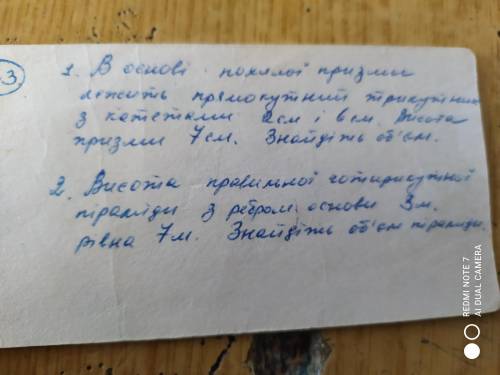 3
1. В основі похилої призми
лежить прямокутний трикутник
з катетами см і см. Висота
призми 7 см. Знайдіть об'єм.
2. Висота правильної чотирикутної
піраміди з ребром основи 3м.
рівна 7м. Знайдіть об'єм піраміди.
REDMI NOTE 7
AI DUAL CAMERA